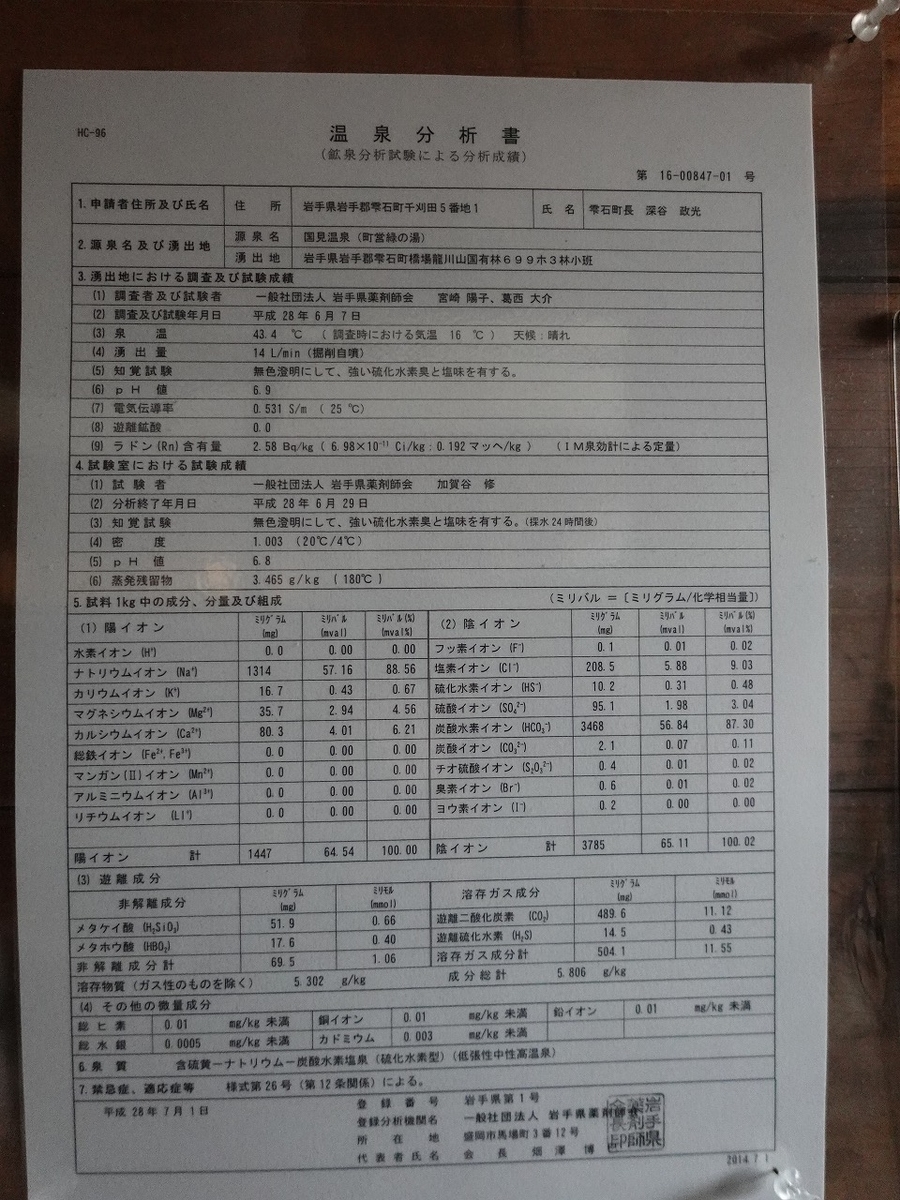 HC-96
温泉分析書
(鉱泉分析試験による分析成績)
第 16-00847-01 号
1. 申請者住所及び氏名 住所 岩手県岩手郡雫石町千刈田5番地1 氏名 雫石町長 深谷 政光
2. 源泉名及び湧出地 源泉名 国見温泉 (町営緑の湯)
湧出地 岩手県岩手郡雫石町橋場龍川山国有林699ホ3林小班
3. 湧出地における調査及び試験成績
(1) 調査者及び試験者 一般社団法人 岩手県薬剤師会 宮崎 陽子、葛西 大介
(2) 調査及び試験年月日 平成 28年 6月 7日
(3) 泉温 43.4 ℃ ( 調査時における気温 16 ℃ ) 天候:晴れ
(4) 湧出量 14 L/min (掘削自噴)
(5) 知覚試験 無色澄明にして、強い硫化水素臭と塩味を有する。
(6) pH 値 6.9
(7) 電気伝導率 0.531 S/m ( 25 ℃)
(8) 遊離鉱酸 0.0
(9) ラドン(Rn)含有量 2.58 Bq/kg ( 6.98×10⁻¹¹ Ci/kg : 0.192 マッヘ/kg ) (IM泉効計による定量)
4. 試験室における試験成績
(1) 試験者 一般社団法人 岩手県薬剤師会 加賀谷 修
(2) 分析終了年月日 平成 28年 6月 29日
(3) 知覚試験 無色澄明にして、強い硫化水素臭と塩味を有する。(採水24時間後)
(4) 密度 1.003 (20℃/4℃)
(5) pH 値 6.8
(6) 蒸発残留物 3.465 g/kg ( 180℃ )
5. 試料1kg中の成分、分量及び組成 (ミリバル = [ミリグラム/化学相当量])
(1) 陽イオン ミリグラム (mg) ミリバル (mval) ミリバル(%) (mval%) (2) 陰イオン ミリグラム (mg) ミリバル (mval) ミリバル(%) (mval%)
水素イオン (H⁺) 0.0 0.00 0.00 フッ素イオン (F⁻) 0.1 0.01 0.02
ナトリウムイオン (Na⁺) 1314 57.16 88.56 塩素イオン (Cl⁻) 208.5 5.88 9.03
カリウムイオン (K⁺) 16.7 0.43 0.67 硫化水素イオン (HS⁻) 10.2 0.31 0.48
マグネシウムイオン (Mg²⁺) 35.7 2.94 4.56 硫酸イオン (SO₄²⁻) 95.1 1.98 3.04
カルシウムイオン (Ca²⁺) 80.3 4.01 6.21 炭酸水素イオン (HCO₃⁻) 3468 56.84 87.30
総鉄イオン (Fe²⁺, Fe³⁺) 0.0 0.00 0.00 炭酸イオン (CO₃²⁻) 2.1 0.07 0.11
マンガン(Ⅱ)イオン (Mn²⁺) 0.0 0.00 0.00 チオ硫酸イオン (S₂O₃²⁻) 0.4 0.01 0.02
アルミニウムイオン (Al³⁺) 0.0 0.00 0.00 臭素イオン (Br⁻) 0.6 0.01 0.02
リチウムイオン (Li⁺) 0.0 0.00 0.00 ヨウ素イオン (I⁻) 0.2 0.00 0.00
陽イオン 計 1447 64.54 100.00 陰イオン 計 3785 65.11 100.02
(3) 遊離成分
非解離成分 ミリグラム (mg) ミリモル (mmol) 溶存ガス成分 ミリグラム (mg) ミリモル (mmol)
メタケイ酸 (H₂SiO₃) 51.9 0.66 遊離二酸化炭素 (CO₂) 489.6 11.12
メタホウ酸 (HBO₂) 17.6 0.40 遊離硫化水素 (H₂S) 14.5 0.43
非解離成分計 69.5 1.06 溶存ガス成分計 504.1 11.55
溶存物質 (ガス性のものを除く) 5.302 g/kg 成分総計 5.806 g/kg
(4) その他の微量成分
総ヒ素 0.01 mg/kg 未満 銅イオン 0.01 mg/kg 未満 鉛イオン 0.01 mg/kg 未満
総水銀 0.0005 mg/kg 未満 カドミウム 0.003 mg/kg 未満
6. 泉質 含硫黄-ナトリウム-炭酸水素塩泉 (硫化水素型) (低張性中性高温泉)
7. 禁忌症、適応症等 様式第26号 (第12条関係) による。
平成 28年 7月 1日
登録番号 岩手県第1号
登録分析機関名 一般社団法人 岩手県薬剤師会
所在地 盛岡市馬場町3番12号
代表者氏名 会長 畑澤 博
岩手県薬剤師会長印
2014.7.1